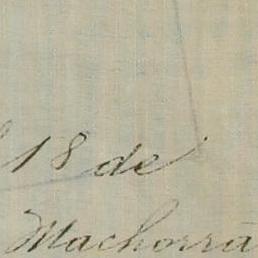 18 de
Machorra